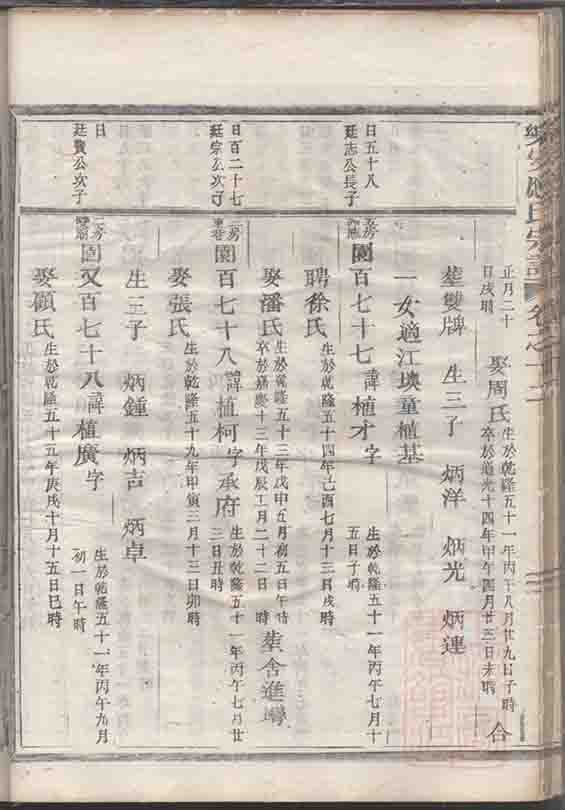 正月二十
日戌時
娶周氏
生於乾隆五十一年丙午八月廿九日子時
卒於道光十四年甲午四月廿三日未時
合
塟雙牌 生三子 炳洋 炳光 炳連
一女適江塽童植基
日五十八
廷志公長子
園百七十七諱植才字
生於乾隆五十一年丙午七月十
五日子時
聘徐氏
生於乾隆五十四年己酉七月十三日戌時
娶潘氏
生於乾隆五十三年戊申五月初五日午時
卒於嘉慶十三年戊辰二月二十二日 時
塟舍進灣
日百二十七
廷宗公次子
園百七十八諱植柯字承府
生於乾隆五十一年丙午七月廿
三日丑時
娶張氏
生於乾隆五十九年甲寅三月十三日卯時
生三子 炳鍾 炳吉 炳卓
日
廷贊公次子
園又百七十八諱植廣字
生於乾隆五十一年丙午九月
初一日午時
娶顧氏
生於乾隆五十五年庚戌十月十五日巳時